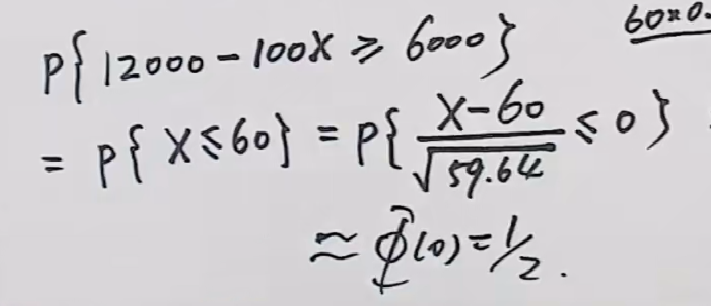 60×0.
P{12000-100X ≥ 6000}
= P{X≤60} = P{\frac{X-60}{\sqrt{59.64}} ≤ 0}
≈ Φ(0) = 1/2.